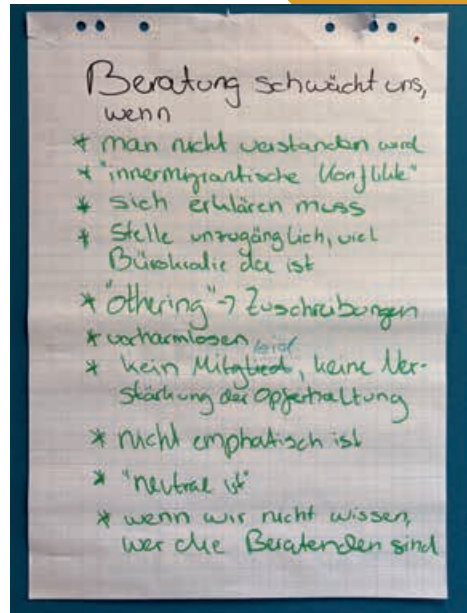 Beratung schwächt uns,
wenn
* man nicht verstanden wird
* "innermigrantische Konflikte"
* sich erklären muss
* Stelle unzugänglich, viel
Bürokratie da ist
* "othering" → Zuschreibungen
* verharmlosen
leid
* kein Mitglied, keine Ver-
stärkung der Opferhaltung
* nicht emphatisch ist
* "neutral ist"
* wenn wir nicht wissen,
wer die Beratenden sind